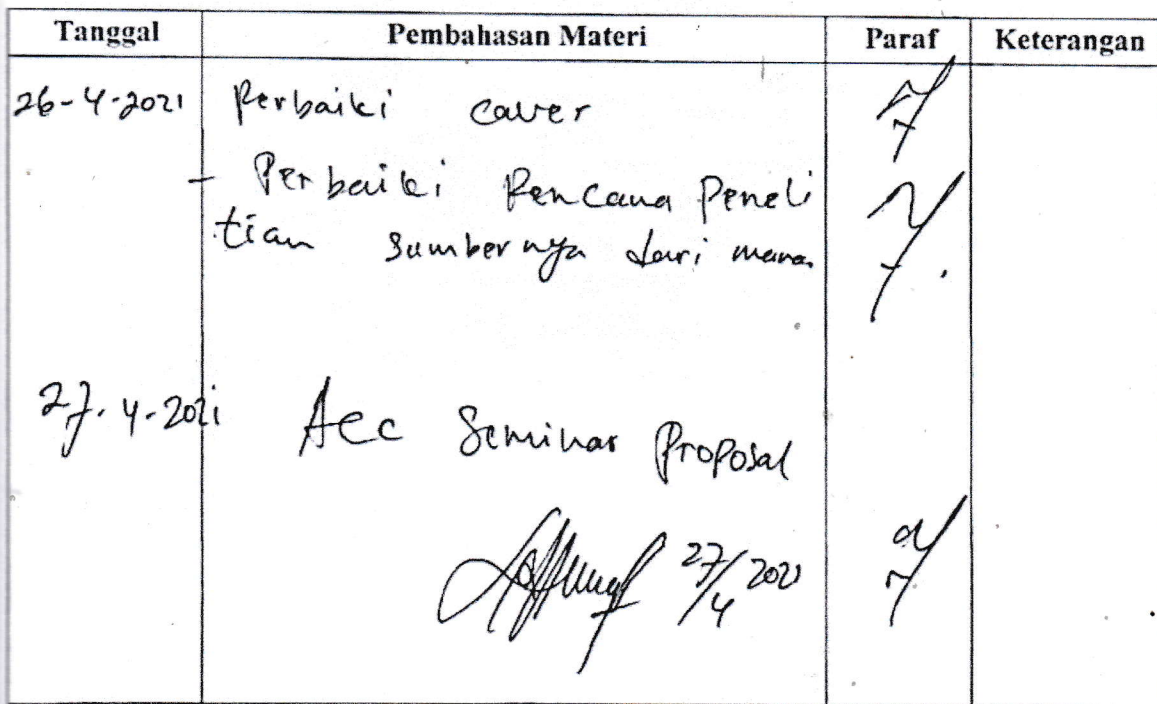 Tanggal Pembahasan Materi Paraf Keterangan
26-4-2021 Perbaiki cover
- Perbaiki Rencana Peneli
tian sumbernya dari mana
27-4-2021 Acc Seminar Proposal
27/4 2021